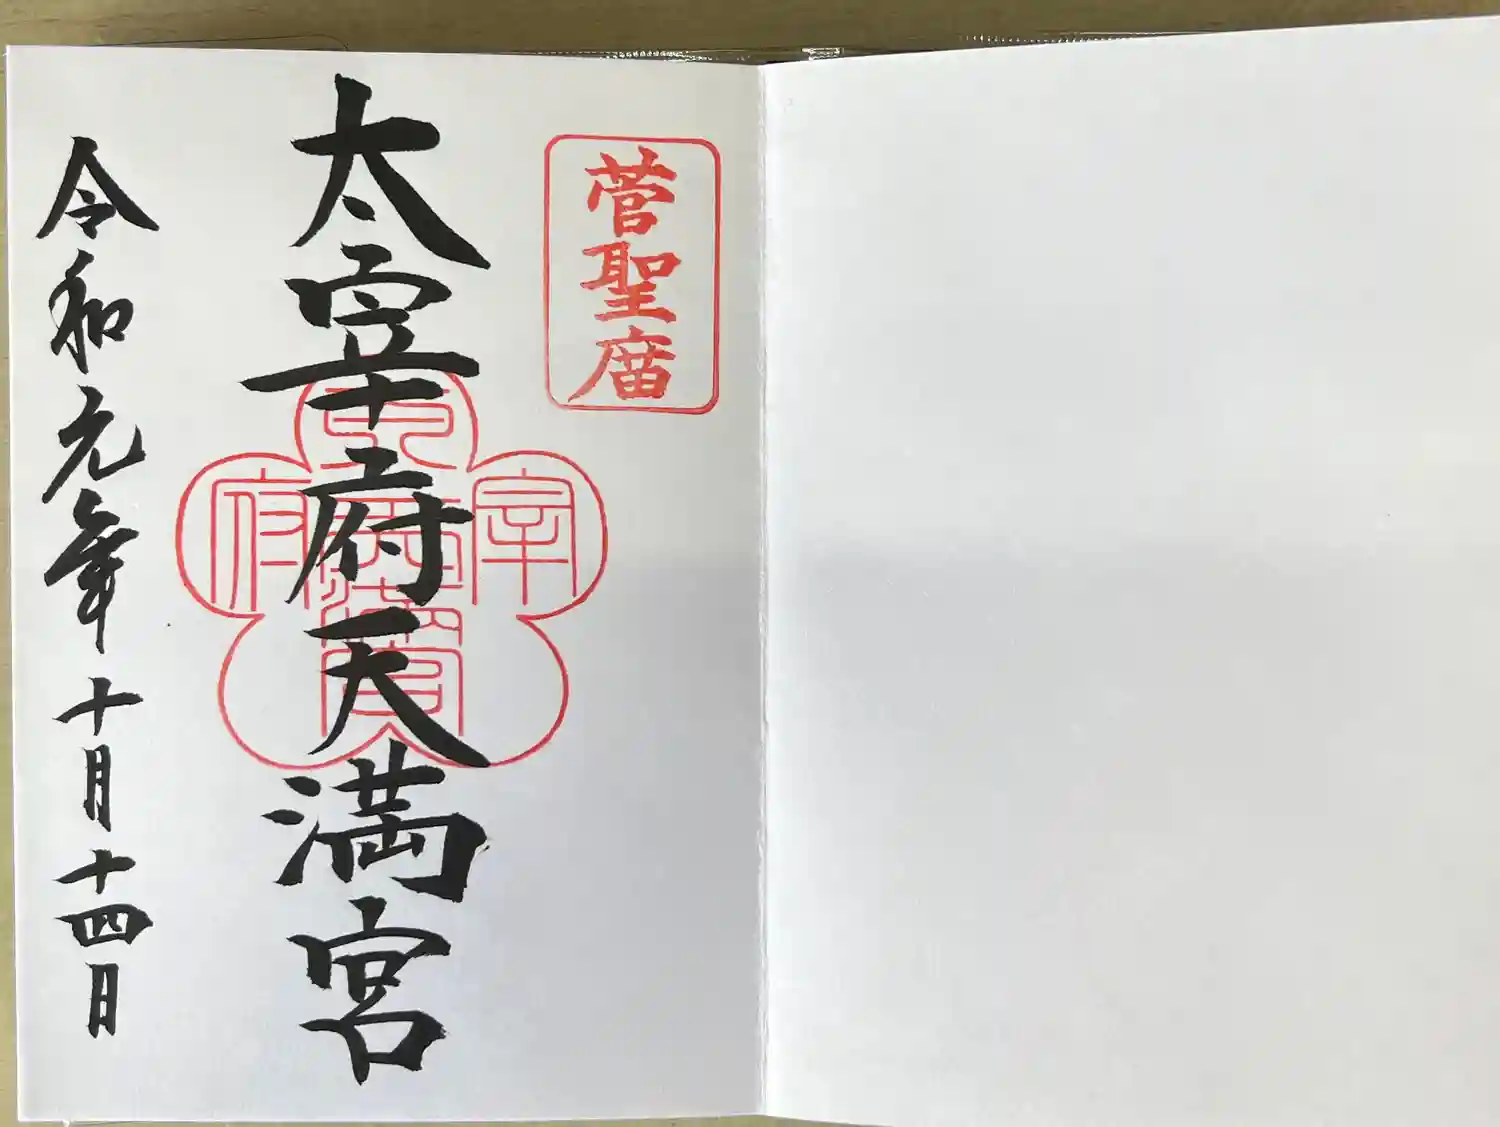 菅聖庿
太宰府天満宮
令和元年十月十四日